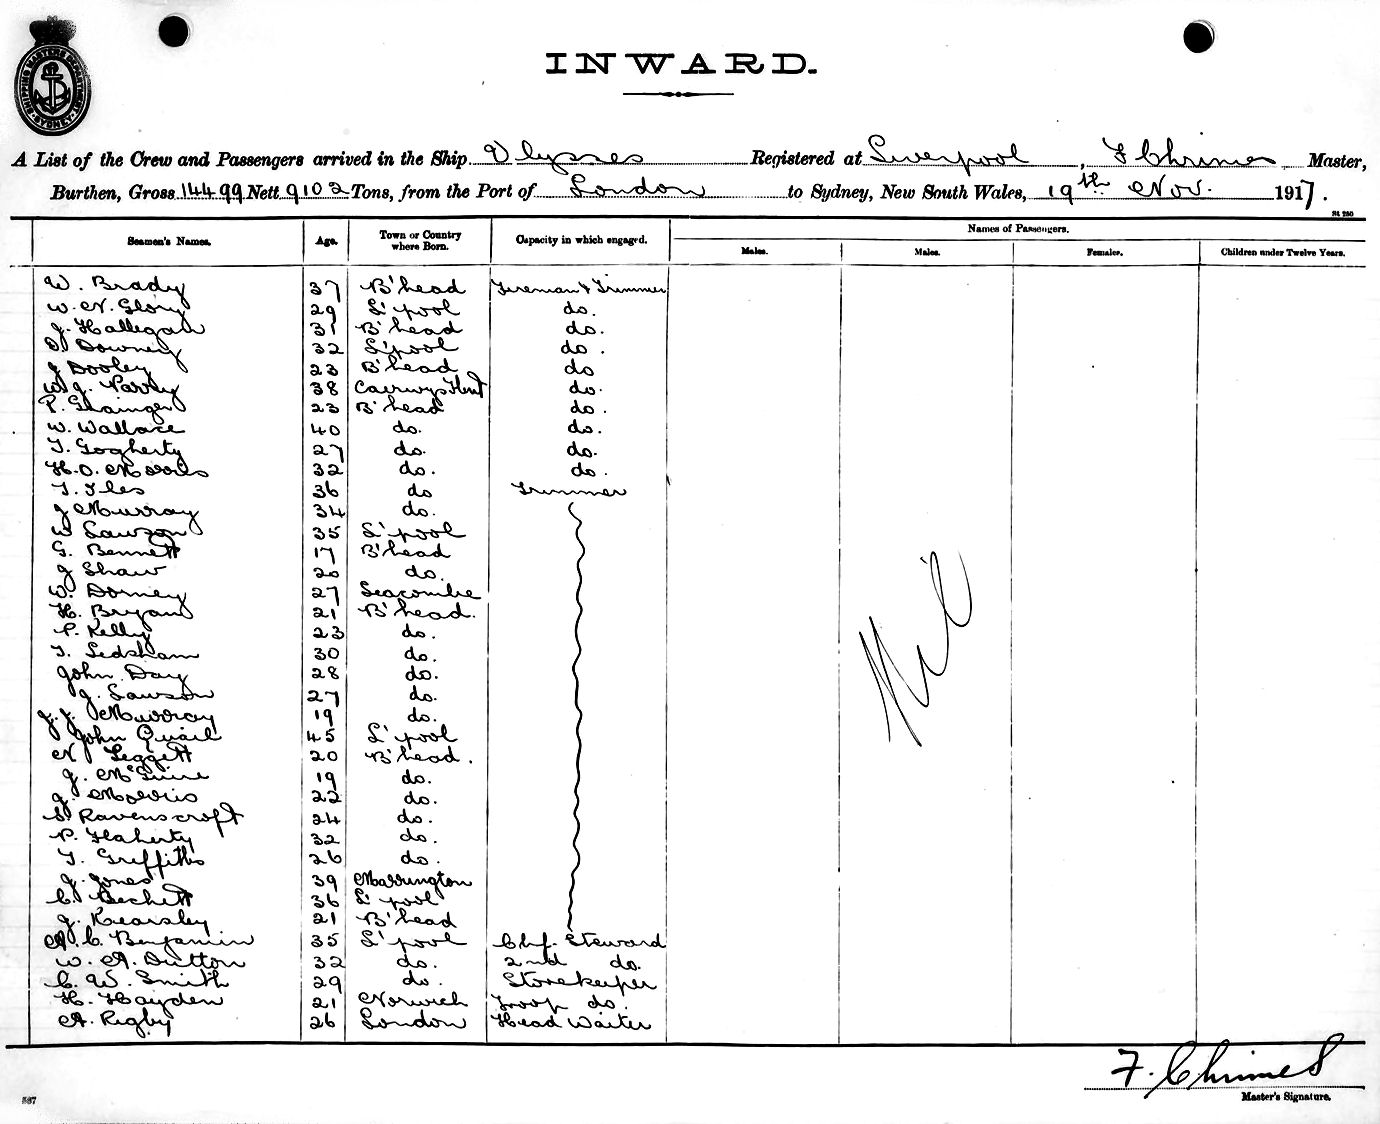 SHIPPING MASTERS DEPARTMENT SYDNEY
INWARD.
A List of the Crew and Passengers arrived in the Ship Ulysses Registered at Liverpool, F Chrimes Master,
Burthen, Gross 14499 Nett 9102 Tons, from the Port of London to Sydney, New South Wales, 19th Nov. 1917.
St 250
Seamen's Names. Age. Town or Country where Born. Capacity in which engaged. Names of Passengers.
Males. Males. Females. Children under Twelve Years.
W. Brady 37 B'head Fireman & Trimmer
W. N. Glory 29 L'pool do.
J. Hallegan 31 B'head do.
D. Downey 32 L'pool do.
J Dooley 23 B'head do
W. J. Parry 38 Caerwys Flint do.
P. Grainger 23 B'head do.
W. Wallace 40 do. do.
T. Gogherty 27 do. do.
H. O. Morris 32 do. do.
T. Iles 36 do Trimmer
J Murray 34 do.
W Lawson 35 L'pool
G. Bennett 17 B'head
J Shaw 20 do.
W. Dorney 27 Seacombe
H. Bryan 21 B'head.
P. Kelly 23 do.
T. Ledsham 30 do.
John Day 28 do.
J. Lawson 27 do.
J. J. Murray 19 do.
John Quail 45 L'pool
N Leggett 20 B'head.
J. McGuire 19 do.
J. Morris 22 do.
S Ravenscroft 24 do.
P. Flaherty 32 do.
T. Griffiths 26 do.
J. Jones 39 Marrington
C. Beckett 36 L'pool
J. Kearsley 21 B'head
A. C. Benjamin 35 L'pool Chf. Steward
W. A. Dutton 32 do. 2nd do.
C. W. Smith 29 do. Storekeeper
H. Hayden 21 Norwich Troop do.
A. Rigby 26 London Head Waiter
Nil
F. Chrimes
Master's Signature.
567